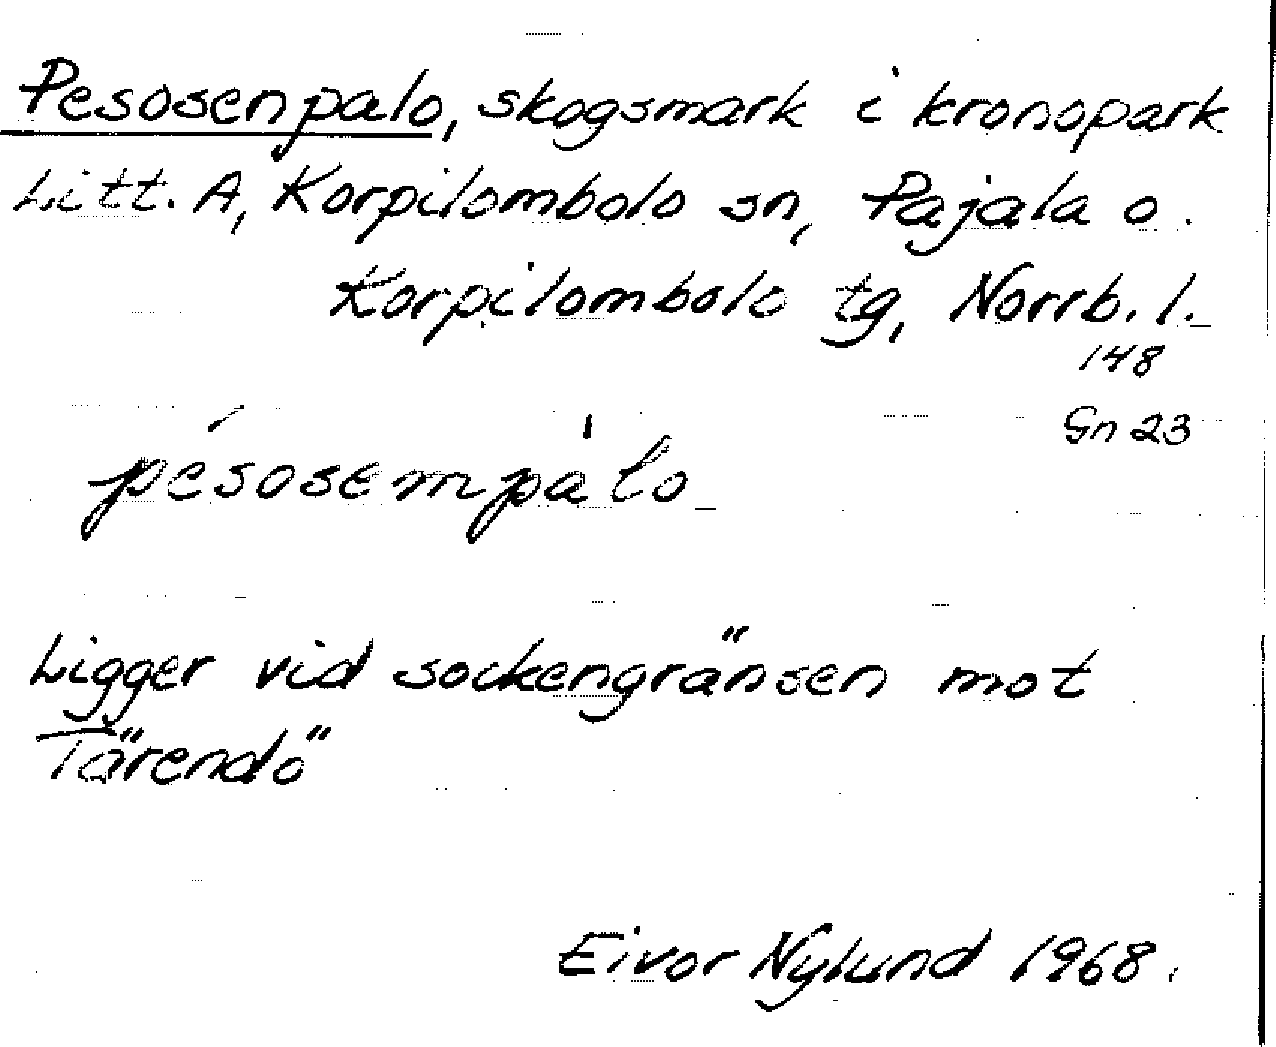 Pesosenpalo, skogsmark i kronopark
Litt. A, Korpilombolo sn, Pajala o.
Korpilombolo tg, Norrb. l.
148
Gn 23
pésosempàlo
Ligger vid sockengränsen mot
Tärendö
Eivor Nylund 1968.